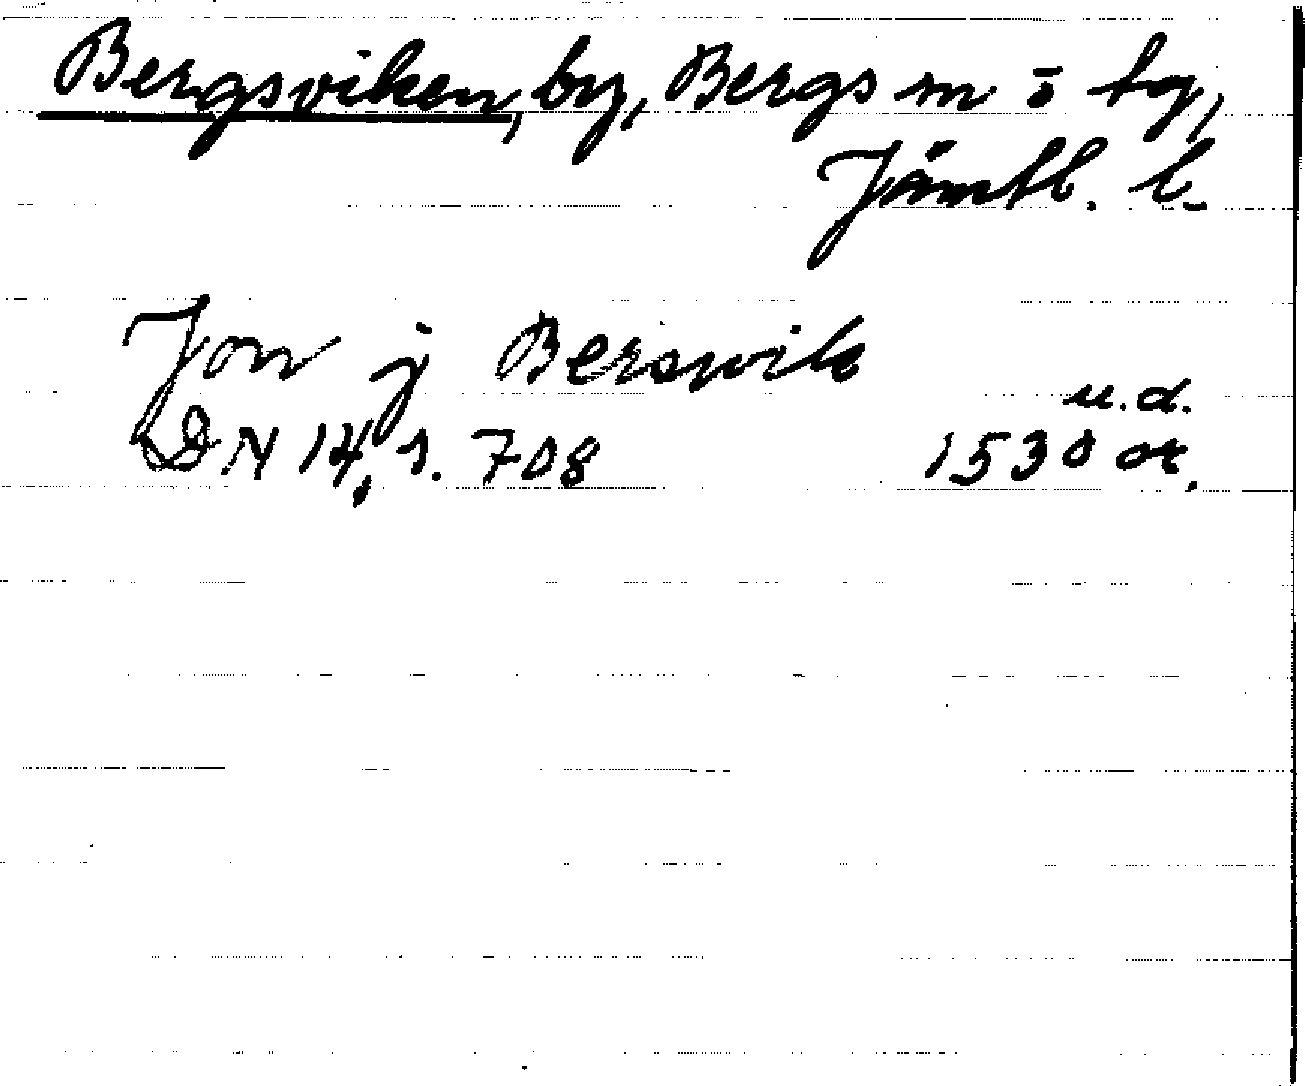 Bergsviken, by, Bergs sn o tg,
Jämtl. l.
Jon j Berswik
u.d.
DN 14, s. 708 1530 or.